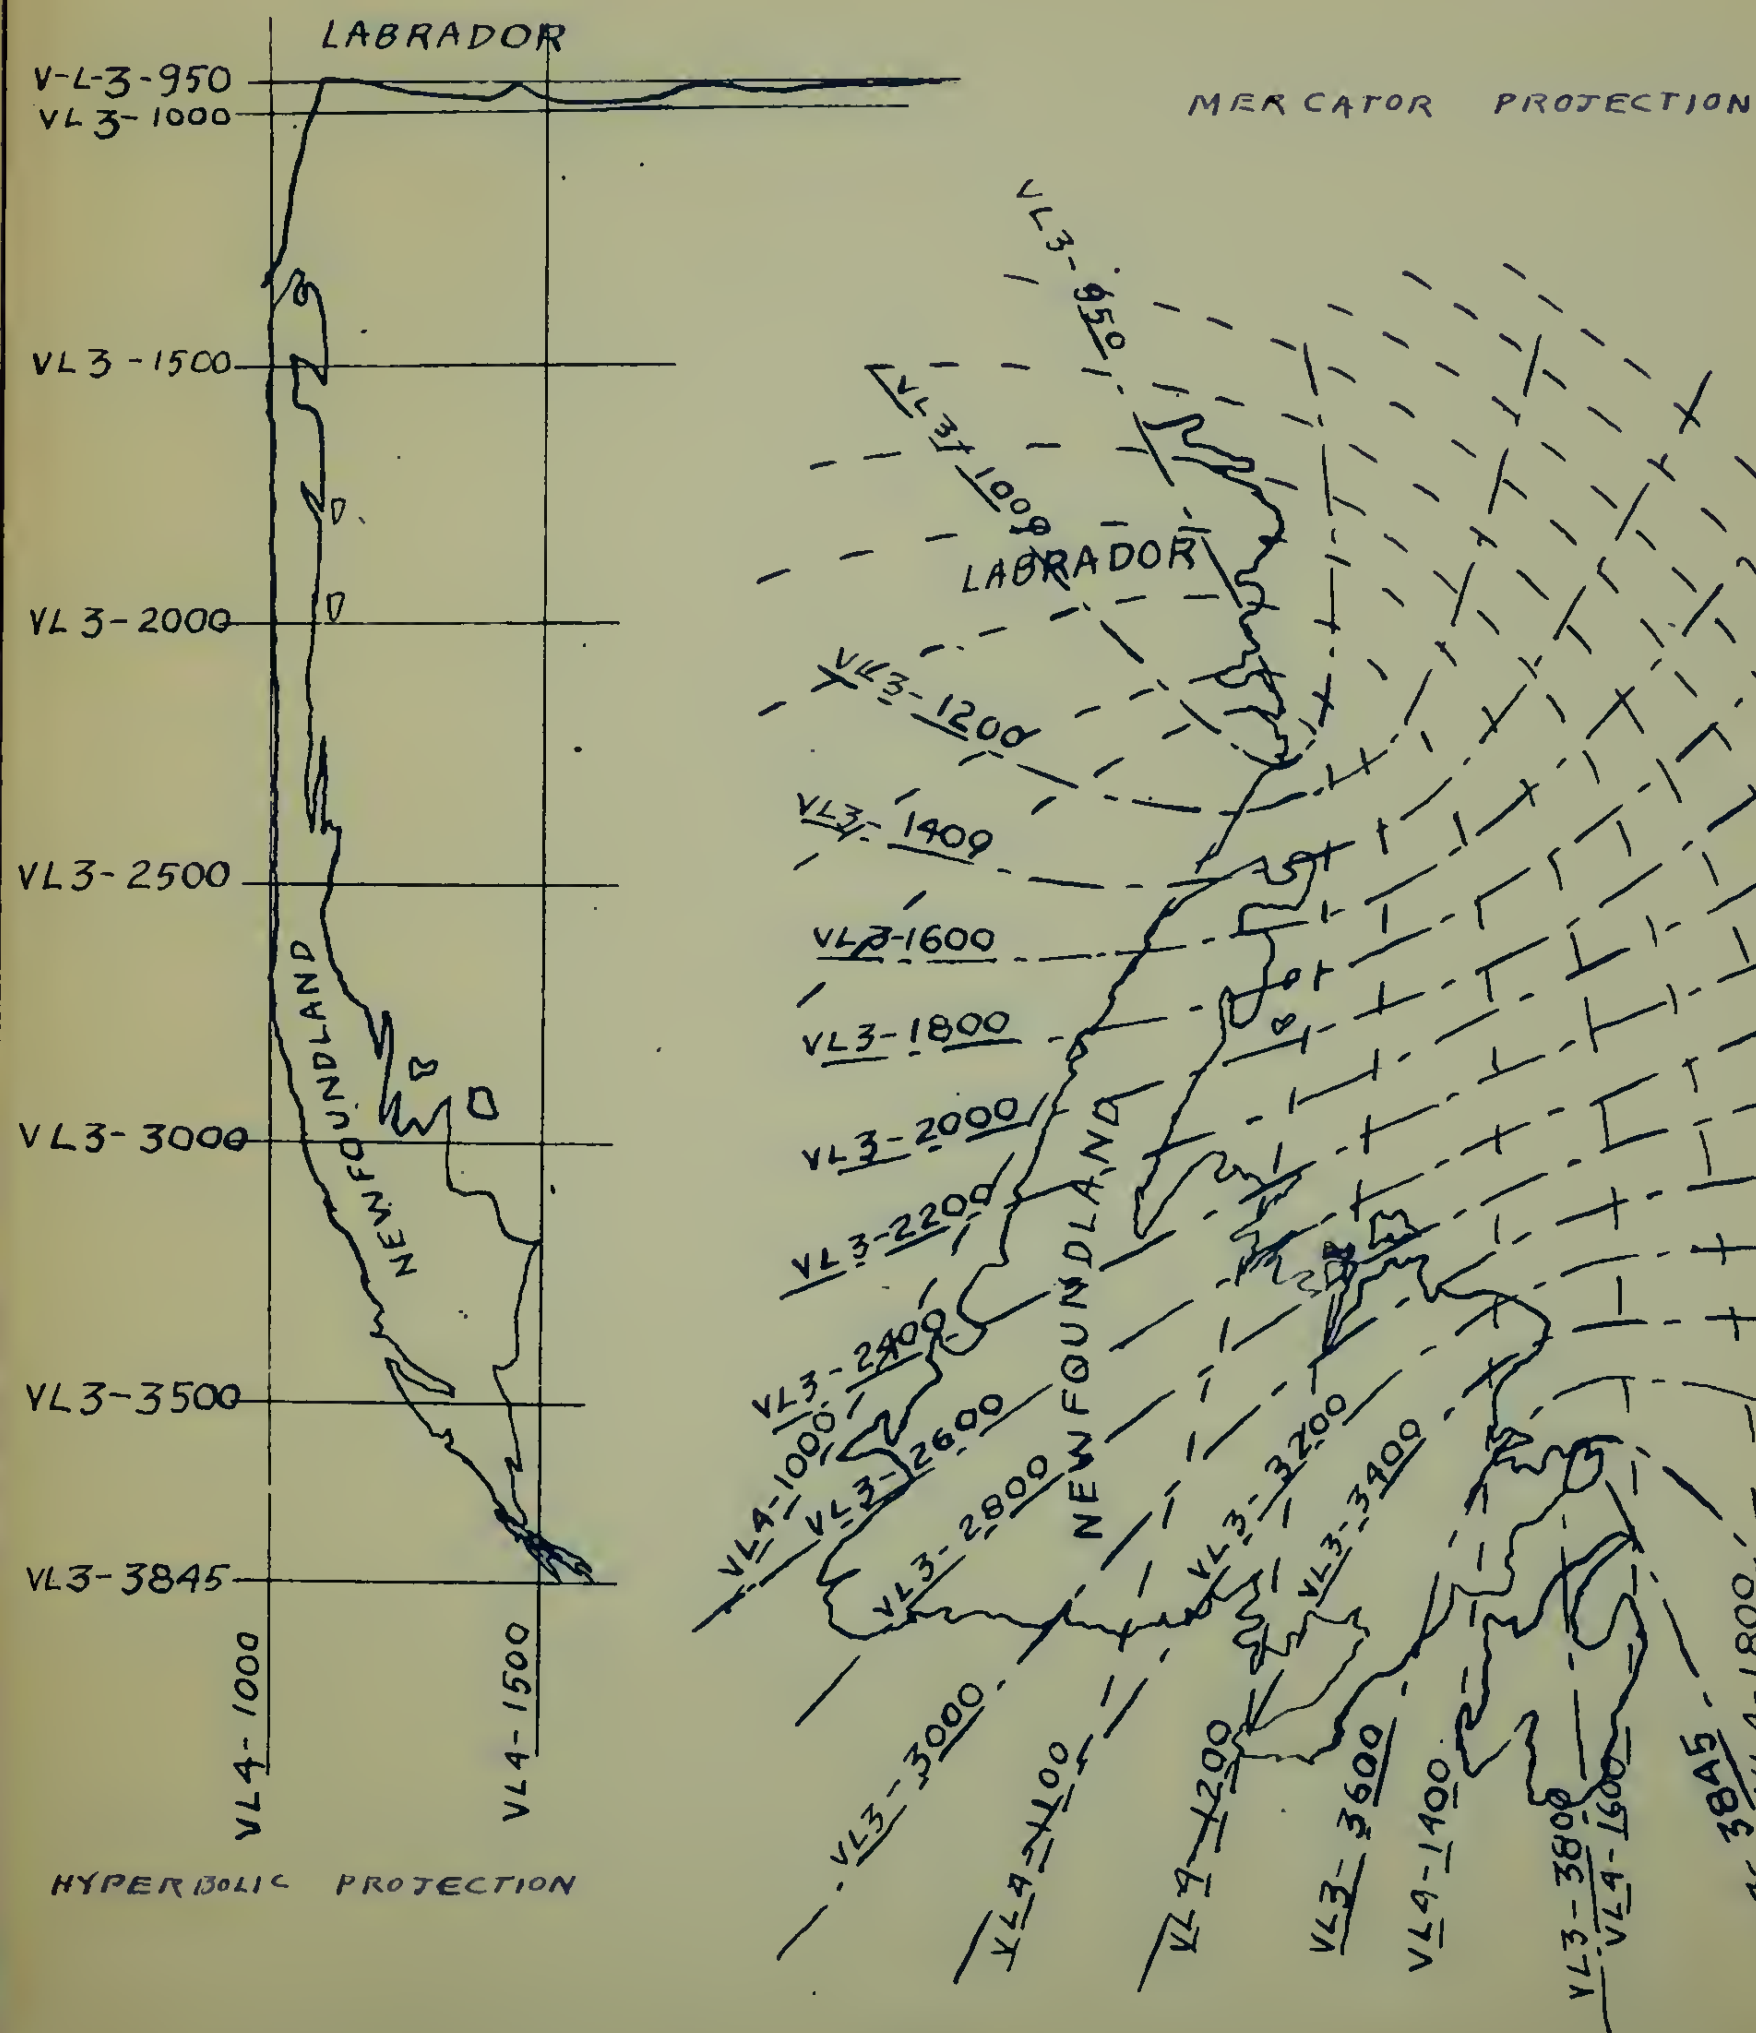 LABRADOR
V-L-3-950
VL3-1000
VL3-1500
VL3-2000
VL3-2500
VL3-3000
VL3-3500
VL3-3845
NEWFOUNDLAND
VL4-1000
VL4-1500
HYPERBOLIC PROJECTION
MERCATOR PROJECTION
VL3-950
VL3-1000
LABRADOR
VL3-1200
VL3-1400
VL3-1600
VL3-1800
VL3-2000
VL3-2200
VL3-2400
VL4-1000
VL3-2600
VL3-2800
NEWFOUNDLAND
VL3-3000
VL4-1100
VL3-3200
VL4-1200
VL3-3400
VL3-3600
VL4-1400
VL3-3800
VL4-1600
3845
1800